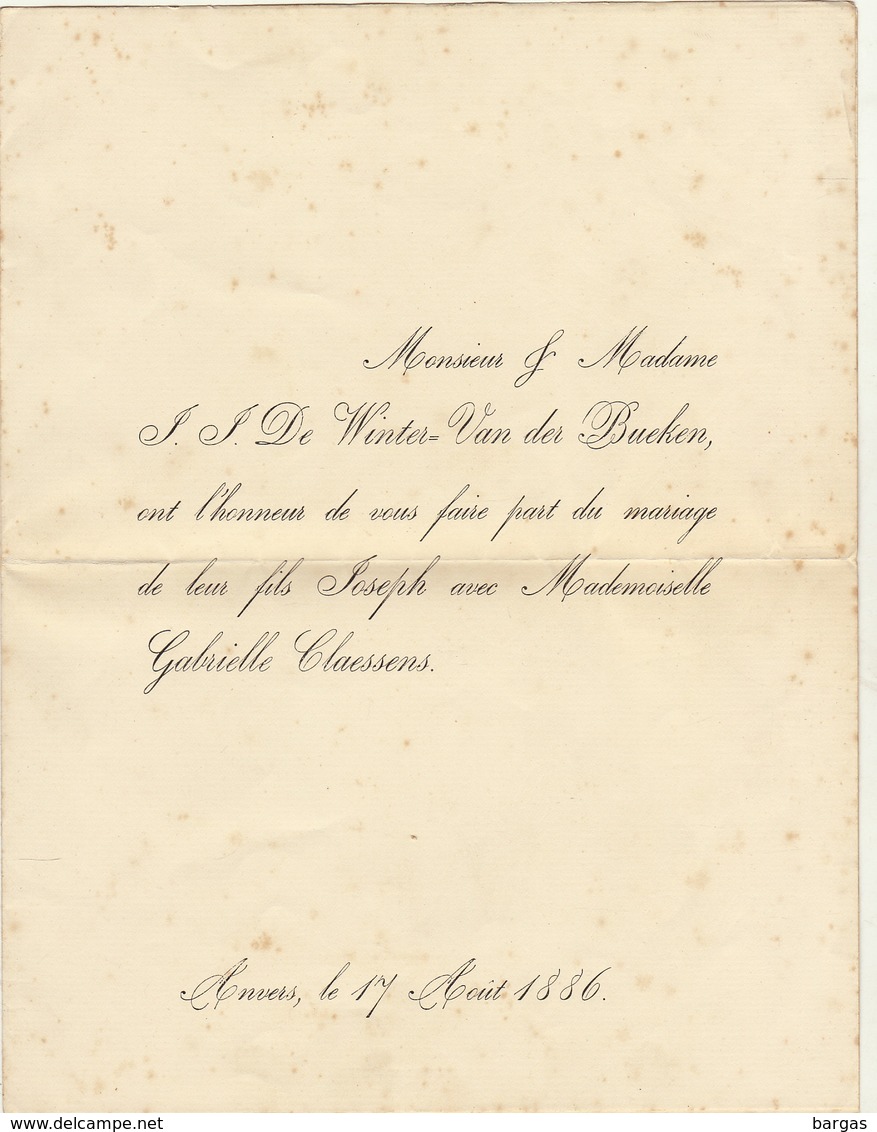 Monsieur & Madame
J. J. De Winter=Van der Bueken,
ont l'honneur de vous faire part du mariage
de leur fils Joseph avec Mademoiselle
Gabrielle Claessens.
Anvers, le 17 Août 1886.
www.delcampe.net
bargas